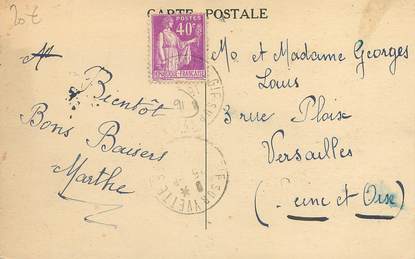 20€
CARTE POSTALE
POSTES
40c
REPUBLIQUE FRANÇAISE
A
Bientôt
Bons Baisers
Marthe
Mr. et Madame Georges
Laus
3 rue Plaix
Versailles
(Seine et Oise)
GIF SUR
F SUR YVETTE S